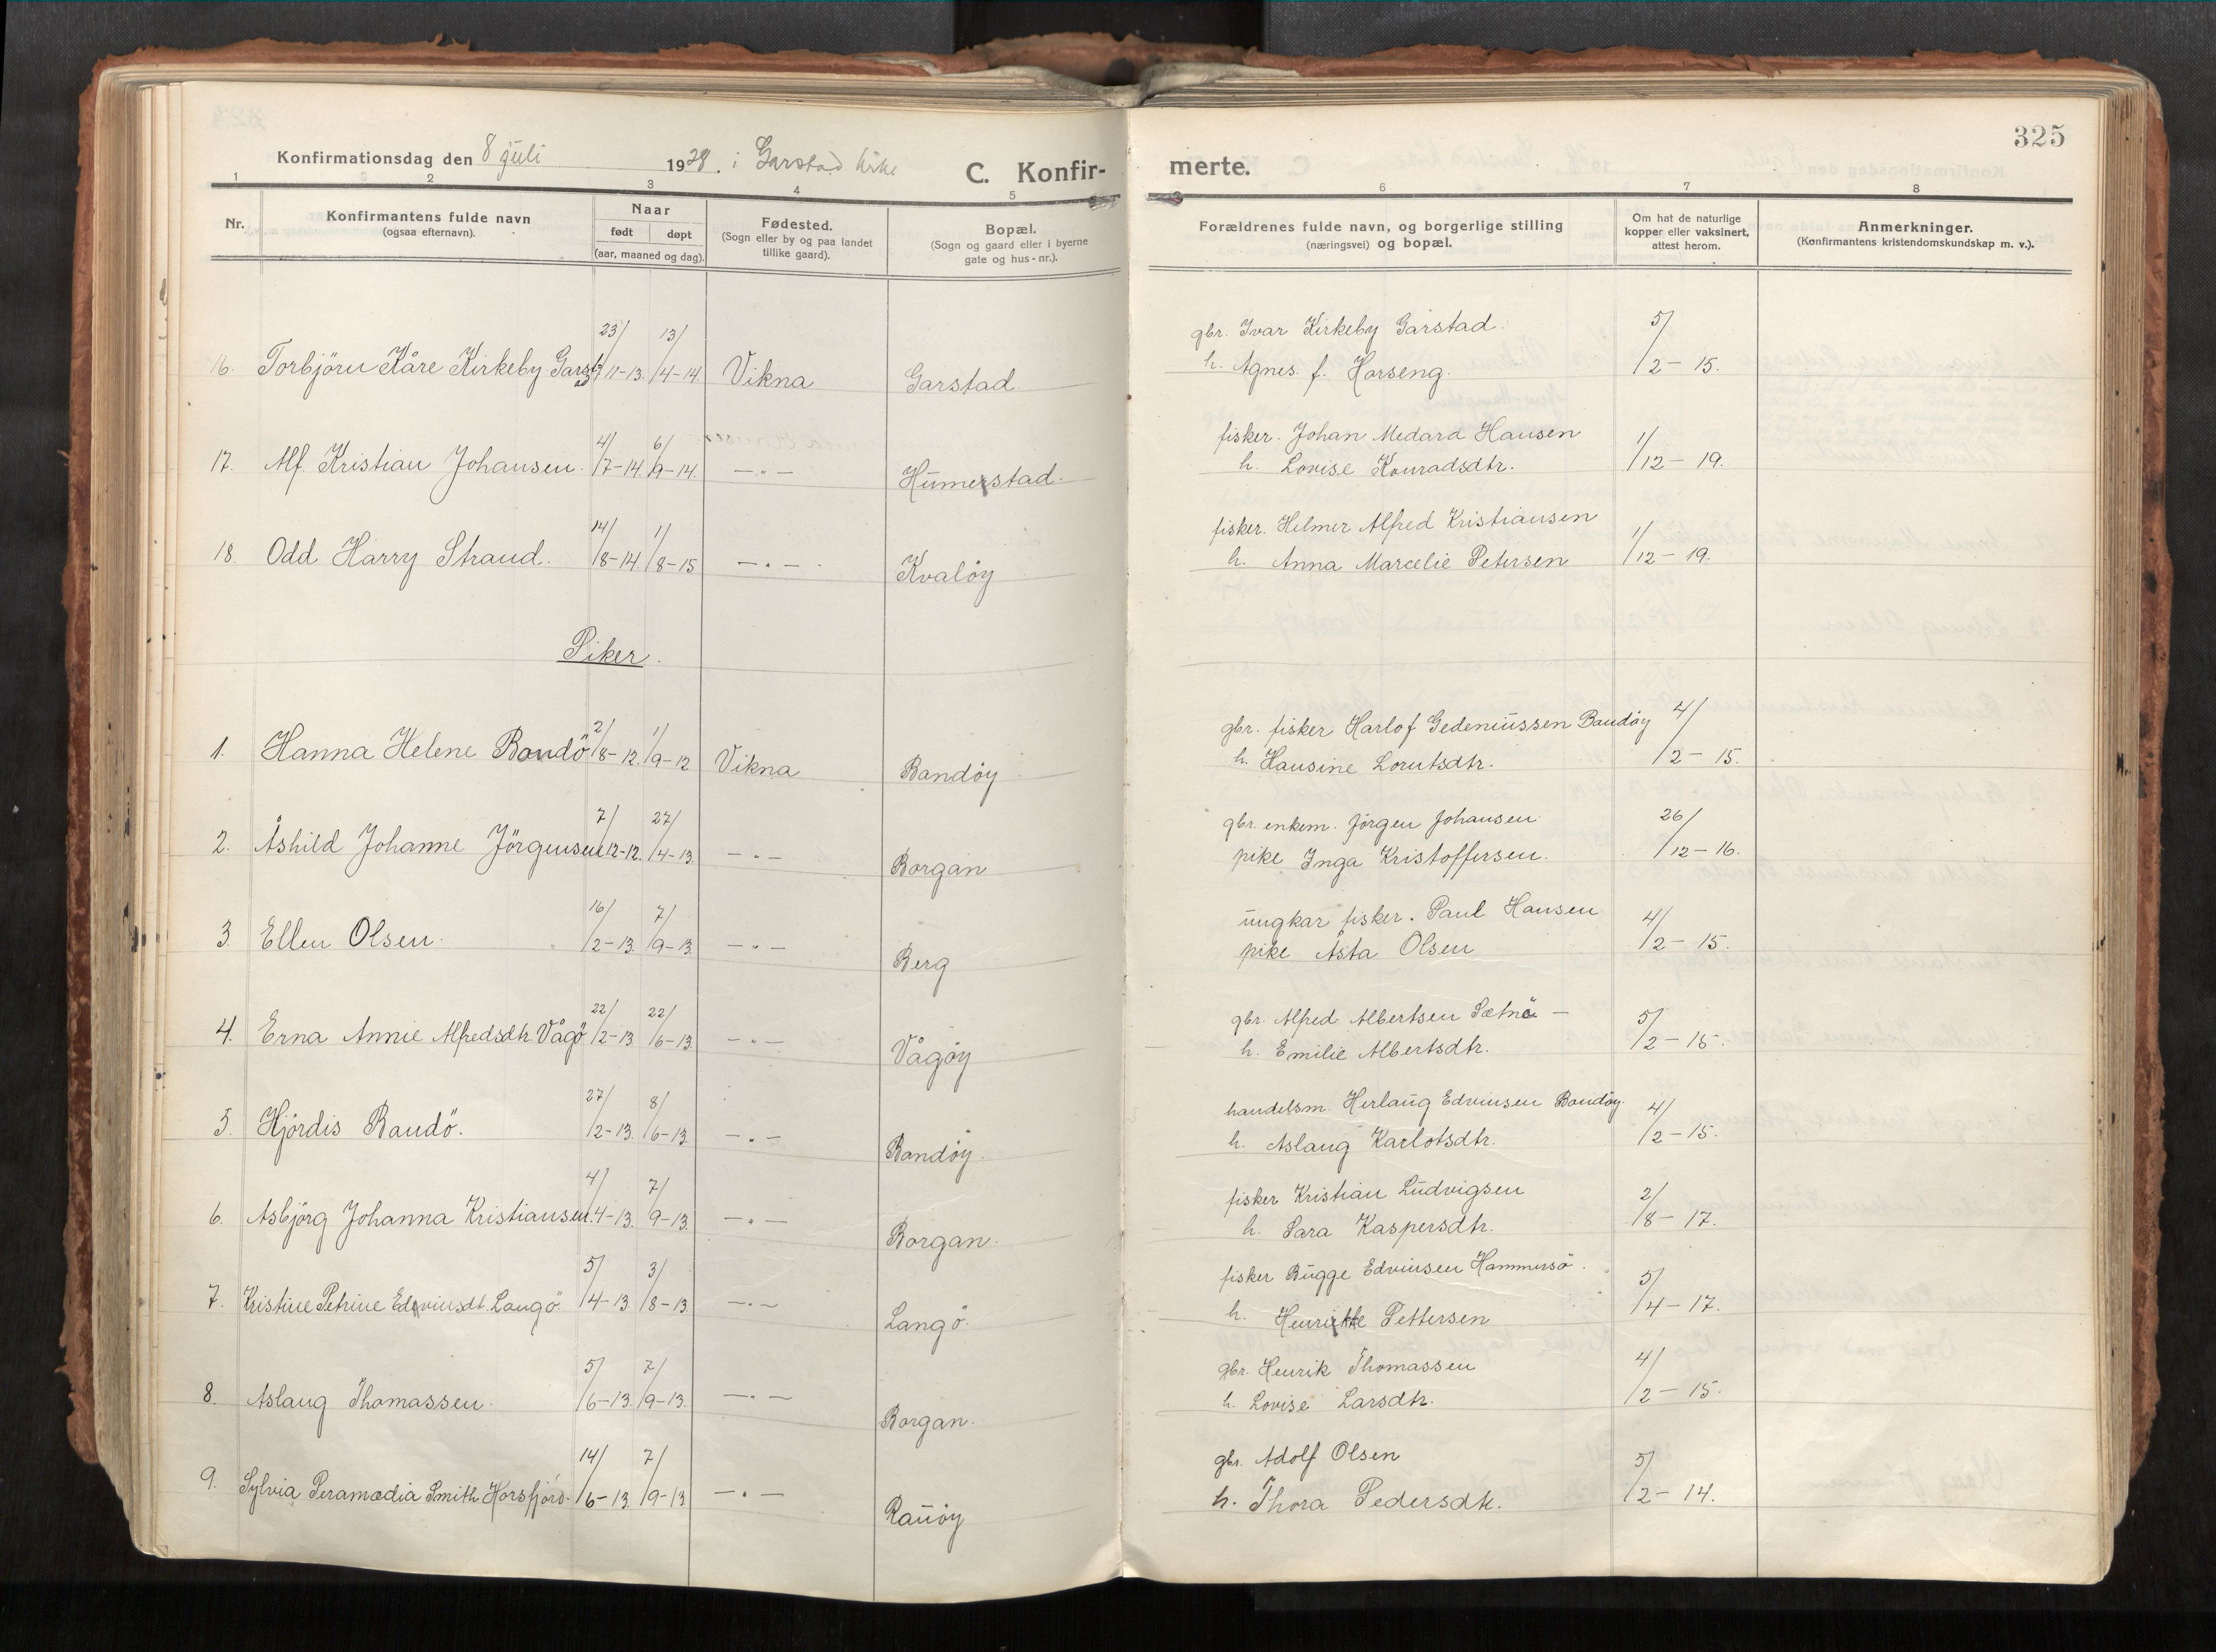 325
Konfirmationsdag den 8 juli 1928. i Garstad kirke C. Konfirmerte.
1 2 3 4 5 6 7 8
Nr. Konfirmantens fulde navn (ogsaa efternavn). Naar født døpt (aar, maaned og dag). Fødested. (Sogn eller by og paa landet tillike gaard). Bopæl. (Sogn og gaard eller i byerne gate og hus-nr.). Forældrenes fulde navn, og borgerlige stilling (næringsvei) og bopæl. Om hat de naturlige kopper eller vaksinert, attest herom. Anmerkninger. (Konfirmantens kristendomskundskap m. v.).
16. Torbjörn Kåre Kirkeby Garstad 23/11-13. 13/4-14 Vikna Garstad gbr. Ivar Kirkeby Garstad. 5/2-15.
h. Agnes f. Horseng.
17. Alf Kristian Johansen. 4/7-14. 6/9-14. —"— Humerstad. fisker. Johan Medard Hansen 1/12-19.
h. Lovise Konradsdtr.
18. Odd Harry Strand. 14/8-14. 1/8-15 —"— Kvaløy fisker. Helmer Alfred Kristiansen 1/12-19.
h. Anna Marcelie Petersen
Piker.
1. Hanna Helene Bondö 2/8-12. 1/9-12 Vikna Bandøy gbr. fisker Harlof Gedeniussen Bandøy 4/2-15.
h. Hansine Lorntsdtr.
2. Åshild Johanne Jörgensen 7/12-12. 27/4-13. —"— Borgan gbr. enkem. Jörgen Johansen 26/12-16.
pike Inga Kristoffersen.
3. Ellen Olsen. 16/2-13. 7/9-13. —"— Berg ungkar fisker. Paul Hansen 4/2-15.
pike Åsta Olsen
4. Erna Annie Alfredsdtr. Vågö 22/2-13 22/6-13. —"— Vågøy gbr. Alfred Albertsen Sætnö — 5/2-15.
h. Emilie Albertsdtr.
5. Hjördis Bandö. 27/2-13. 8/6-13. —"— Bondøy. handelsm. Herlaug Edvinsen Bondøy. 4/2-15.
h. Aslaug Karlotsdtr.
6. Asbjörg Johanna Kristiansen. 4/4-13. 7/9-13. —"— Borgan. fisker Kristian Ludvigsen 2/8-17.
h. Sara Kaspersdtr.
7. Kristine Petrine Edvinsdt. Langö 5/4-13. 3/8-13. —"— Langö. fisker Bugge Edvinsen Hammersö. 5/4-17.
h. Henrikke Pettersen
8. Aslaug Thomassen. 5/6-13. 7/9-13. —"— Borgan. gbr. Henrik Thomassen 4/2-15.
h. Lovise Larsdtr.
9. Sylvia Peramædia Smith Horsfjord. 14/6-13. 7/9-13 —"— Rauøy gbr. Adolf Olsen 5/2-14.
h. Thora Pedersdtr.